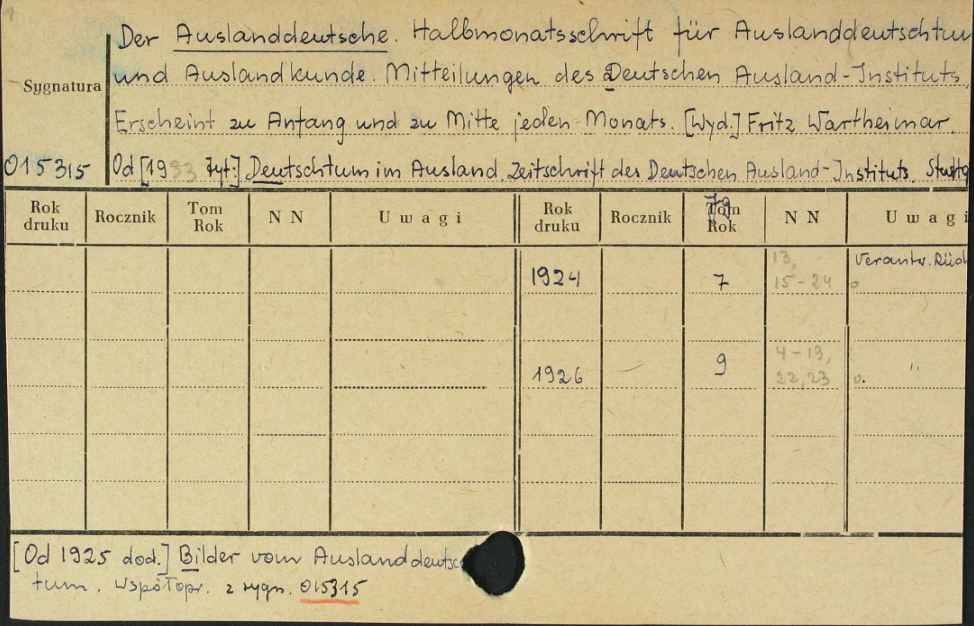 Der Auslanddeutsche. Halbmonatsschrift für Auslanddeutschtum
und Auslandkunde. Mitteilungen des Deutschen Ausland-Instituts
Sygnatura
Erscheint zu Anfang und zu Mitte jeden Monats. [Wyd.] Fritz Wartheimar
015315 Od [1933 tyt:] Deutschtum im Ausland. Zeitschrift des Deutschen Ausland-Instituts. Stuttg
Rok druku Rocznik Tom Rok NN Uwagi Rok druku Rocznik Tom Rok NN Uwagi
Verantw. Rüd
13,
1924 7 15-24
4-19,
1926 9 22,23 "
[Od 1925 dod.] Bilder vom Auslanddeutsc
tum. Współopr. z sygn. 015315